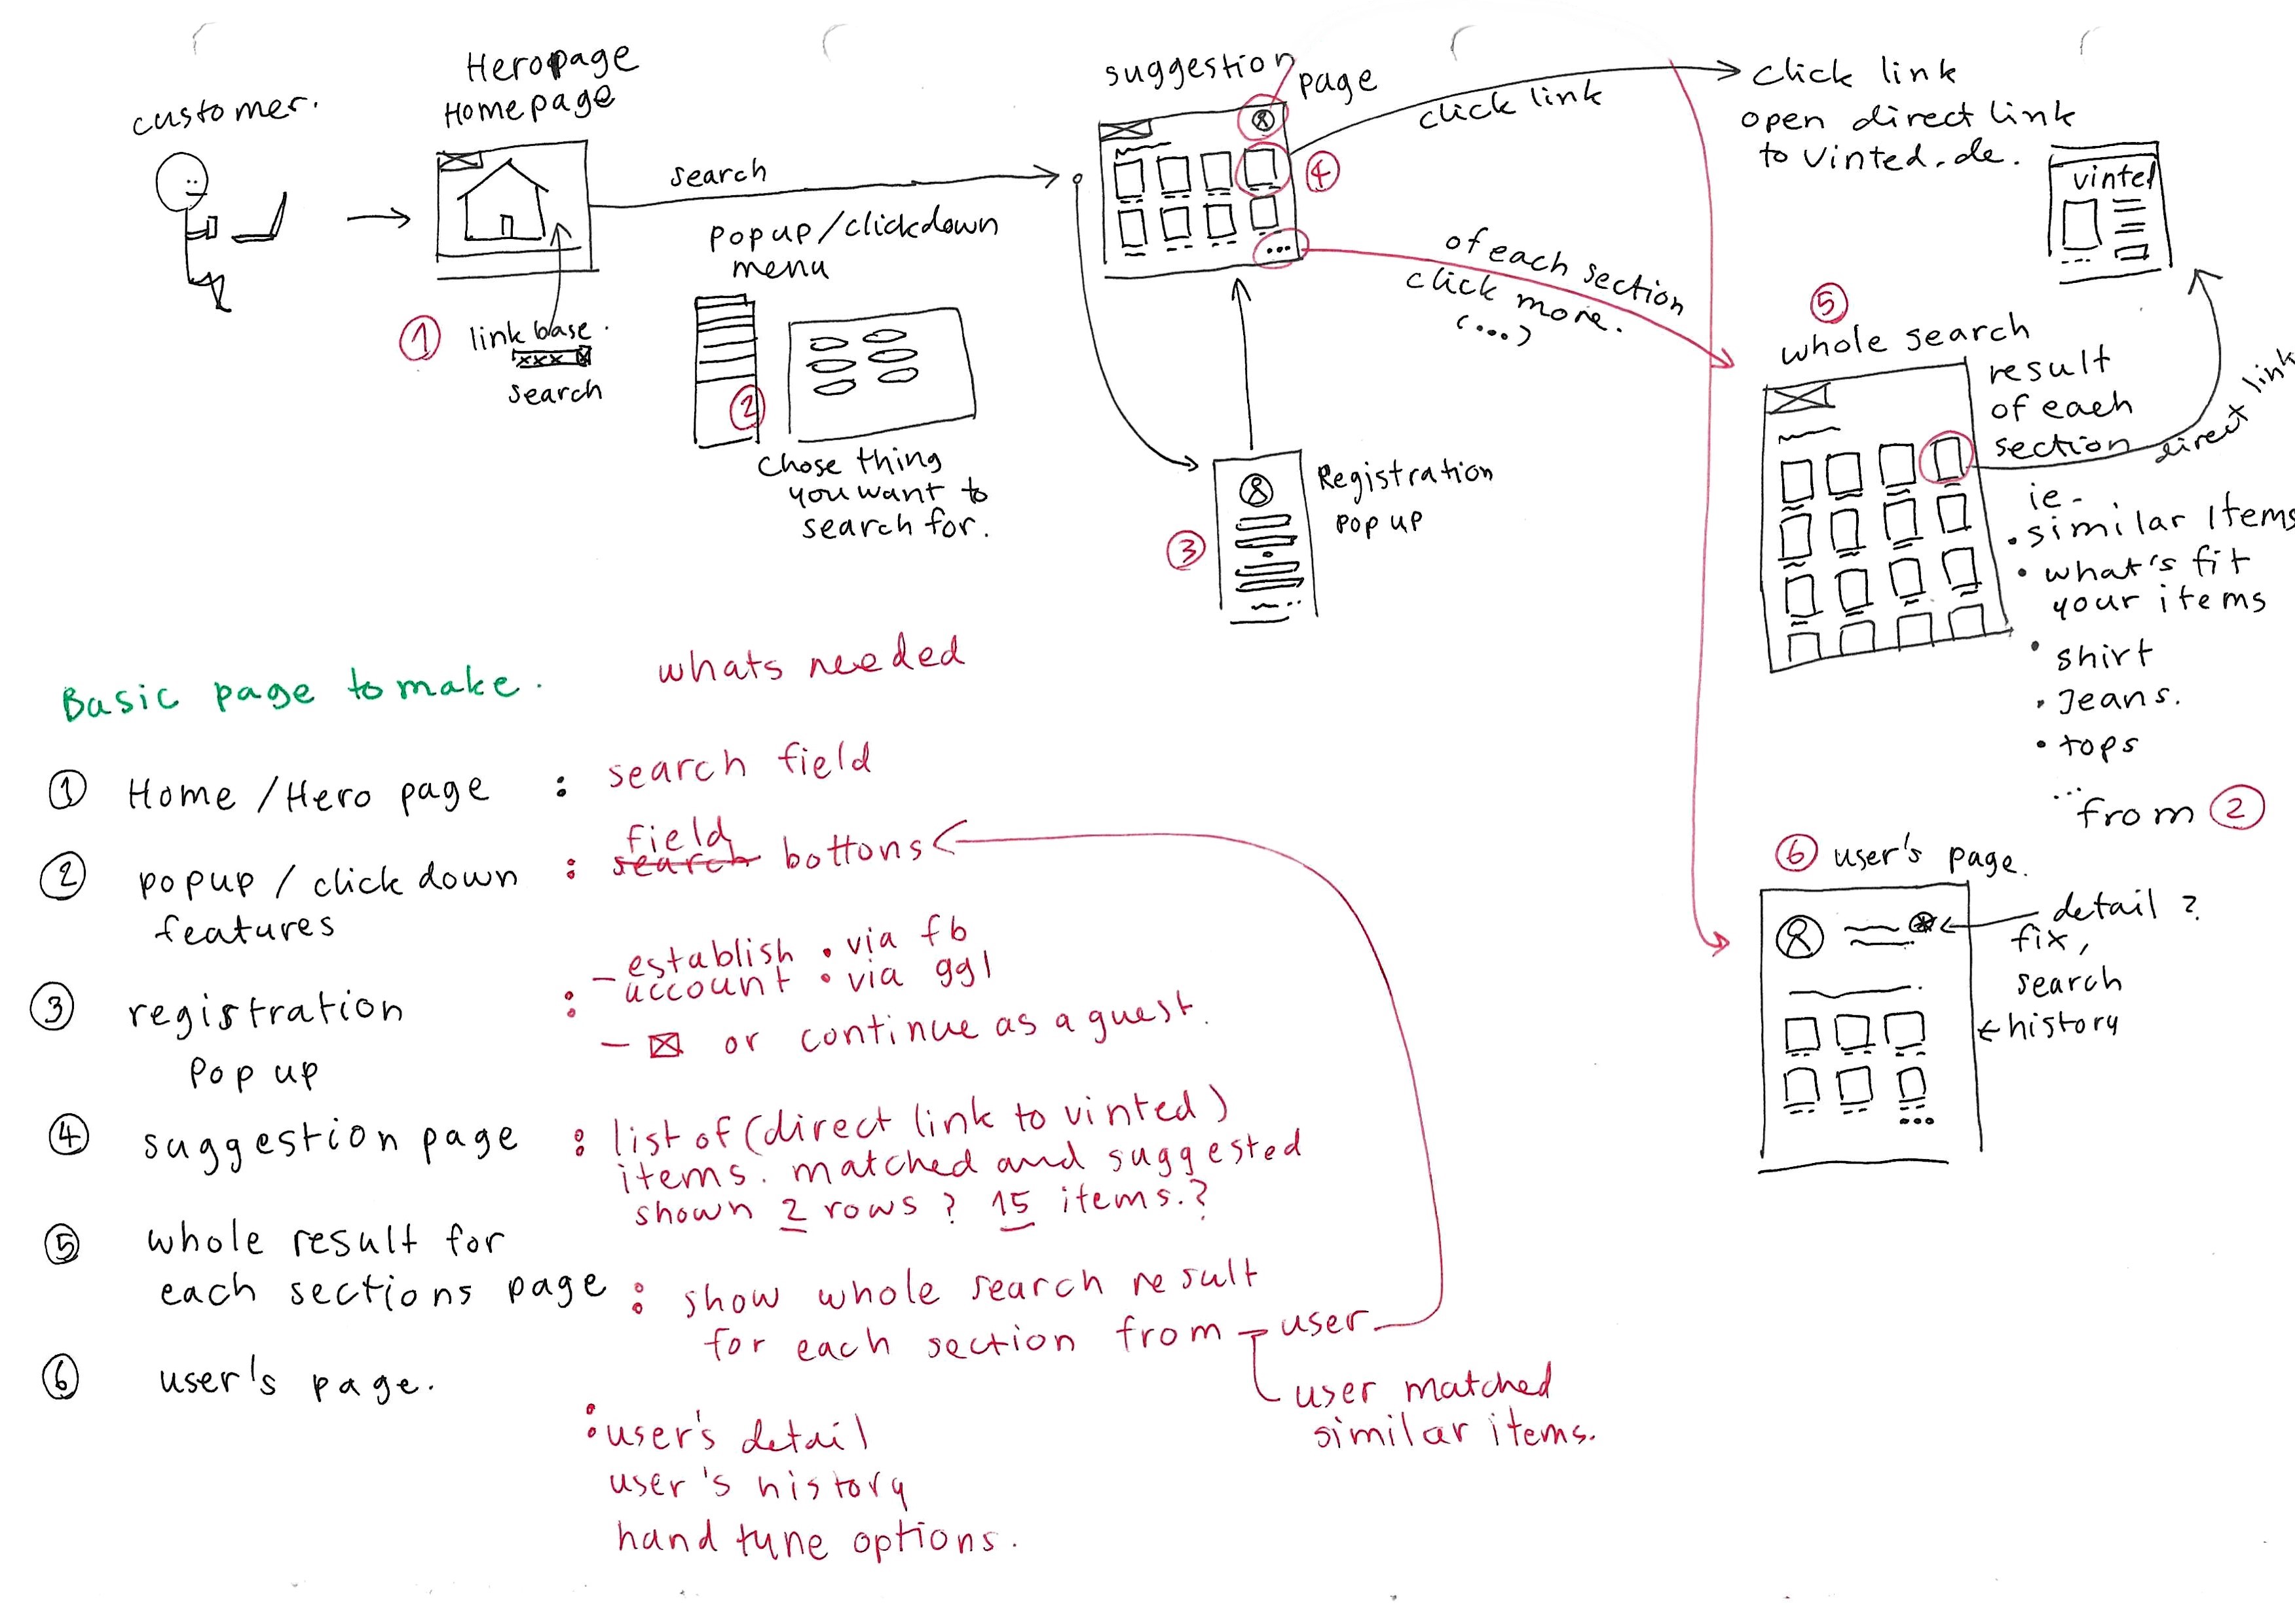 customer.
Heropage
Homepage
① link base.
xxx
search
search
popup/clickdown
menu
②
chose thing
you want to
search for.
suggestion page
④
click link
click link
open direct link
to vinted.de.
vinted
of each section
click more.
(....)
③
Registration
pop up
⑤
whole search
result
of each
section
direct link
ie-
• similar Items
• what's fit
your items
• shirt
• Jeans.
• tops
...
from ②
⑥ user's page.
detail ?
fix,
search
history
Basic page to make.
whats needed
① Home /Hero page : search field
② popup / click down : field search bottons
features
③ registration : - establish • via fb
account • via ggl
Pop up
- ☒ or continue as a guest.
④ suggestion page : list of (direct link to vinted)
items. matched and suggested
shown 2 rows ? 15 items.?
⑤ whole result for
each sections page : show whole search result
for each section from - user
user matched
similar items.
⑥ user's page.
: user's detail
user's history
hand tune options.